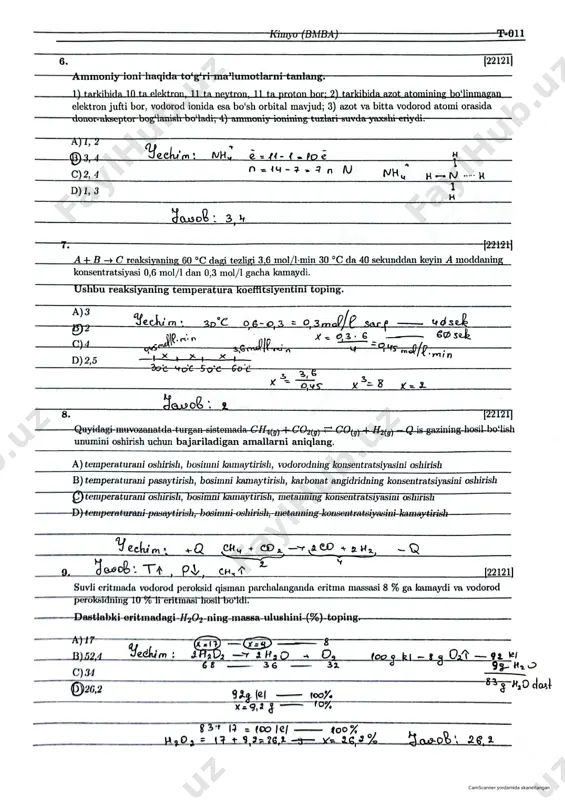 Kimyo (BMBA) T-011
6. [22121]
Ammoniy ioni haqida to‘g‘ri ma’lumotlarni tanlang.
1) tarkibida 10 ta elektron, 11 ta neytron, 11 ta proton bor; 2) tarkibida azot atomining bo‘linmagan
elektron jufti bor, vodorod ionida esa bo‘sh orbital mavjud; 3) azot va bitta vodorod atomi orasida
donor-akseptor bog‘lanish bo‘ladi; 4) ammoniy ionining tuzlari suvda yaxshi eriydi.
A) 1, 2
B) 3, 4
C) 2, 4
D) 1, 3
Yechim: NH₄⁺ ē = 11 - 1 = 10 ē
n = 14 - 7 = 7 n N
NH₄⁺
H
H — N ···· H
H
Javob: 3,4
7. [22121]
A + B → C reaksiyaning 60 °C dagi tezligi 3,6 mol/l·min 30 °C da 40 sekunddan keyin A moddaning
konsentratsiyasi 0,6 mol/l dan 0,3 mol/l gacha kamaydi.
Ushbu reaksiyaning temperatura koeffitsiyentini toping.
A) 3
B) 2
C) 4
D) 2,5
Yechim: 30°C 0,6-0,3 = 0,3 mol/l sarf — 40 sek
x = 0,3 · 6 / 4 = 0,45 mol/l·min 60 sek
0,45 mol/l·min 3,6 mol/l·min
x x x
30°C 40°C 50°C 60°C
x³ = 3,6 / 0,45 x³ = 8 x = 2
Javob: 2
8. [22121]
Quyidagi muvozanatda turgan sistemada CH₄(g) + CO₂(g) ⇄ CO(g) + H₂(g) − Q is gazining hosil bo‘lish
unumini oshirish uchun bajariladigan amallarni aniqlang.
A) temperaturani oshirish, bosimni kamaytirish, vodorodning konsentratsiyasini oshirish
B) temperaturani pasaytirish, bosimni kamaytirish, karbonat angidridning konsentratsiyasini oshirish
C) temperaturani oshirish, bosimni kamaytirish, metanning konsentratsiyasini oshirish
D) temperaturani pasaytirish, bosimni oshirish, metanning konsentratsiyasini kamaytirish
Yechim: +Q CH₄ + CO₂ → 2CO + 2H₂ - Q
2 4
Javob: T↑, P↓, CH₄↑
9. [22121]
Suvli eritmada vodorod peroksid qisman parchalanganda eritma massasi 8 % ga kamaydi va vodorod
peroksidning 10 % li eritmasi hosil bo‘ldi.
Dastlabki eritmadagi H₂O₂ ning massa ulushini (%) toping.
A) 17
B) 52,4
C) 34
D) 26,2
x=17 — x=9 — 8
Yechim: 2H₂O₂ → 2H₂O + O₂
68 — 36 — 32
100 g kl - 8 g O₂↑ — 92 kl
9g H₂O
83 g H₂O dast
92g kl — 100%
x = 9,2 g — 10%
83 + 17 = 100 kl — 100%
H₂O₂ = 17 + 9,2 = 26,2 — x = 26,2% Javob: 26,2
FaylHub.uz
CamScanner yordamida skanerlangan